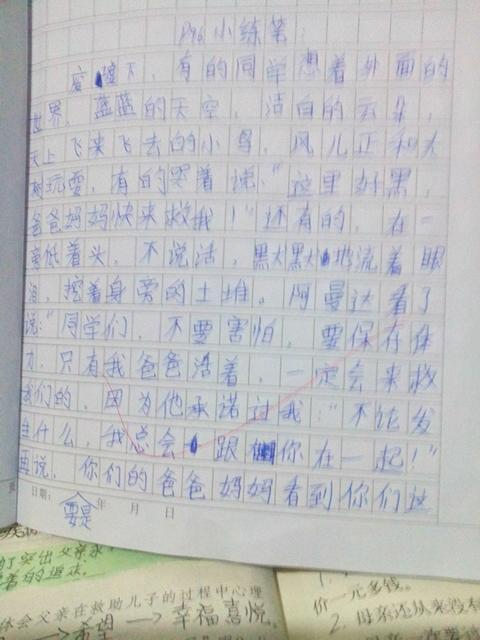 P96小练笔:
废墟下,有的同学想着外面的
世界,蓝蓝的天空,洁白的云朵,
天上飞来飞去的小鸟,风儿正和大
树玩耍,有的哭着说:“这里好黑,
爸爸妈妈快来救我!”还有的,在一
旁低着头,不说活,黑犬黑犬地流着眼
泪,挖着身旁的土堆。阿曼达看了
说:“同学们,不要害怕,要保存体
力,只有我爸爸活着,一定会来救
我们的,因为他承诺过我:“不论发
生什么,我总会跟你在一起!”
再说,你们的爸爸妈妈看到你们这
日期: 年 月 日
要是
突出父亲
着的追求
体会父亲在救助儿子的过程中心理
希望 —> 幸福喜悦
1.
价一元多钱。
2. 母亲还从来没有